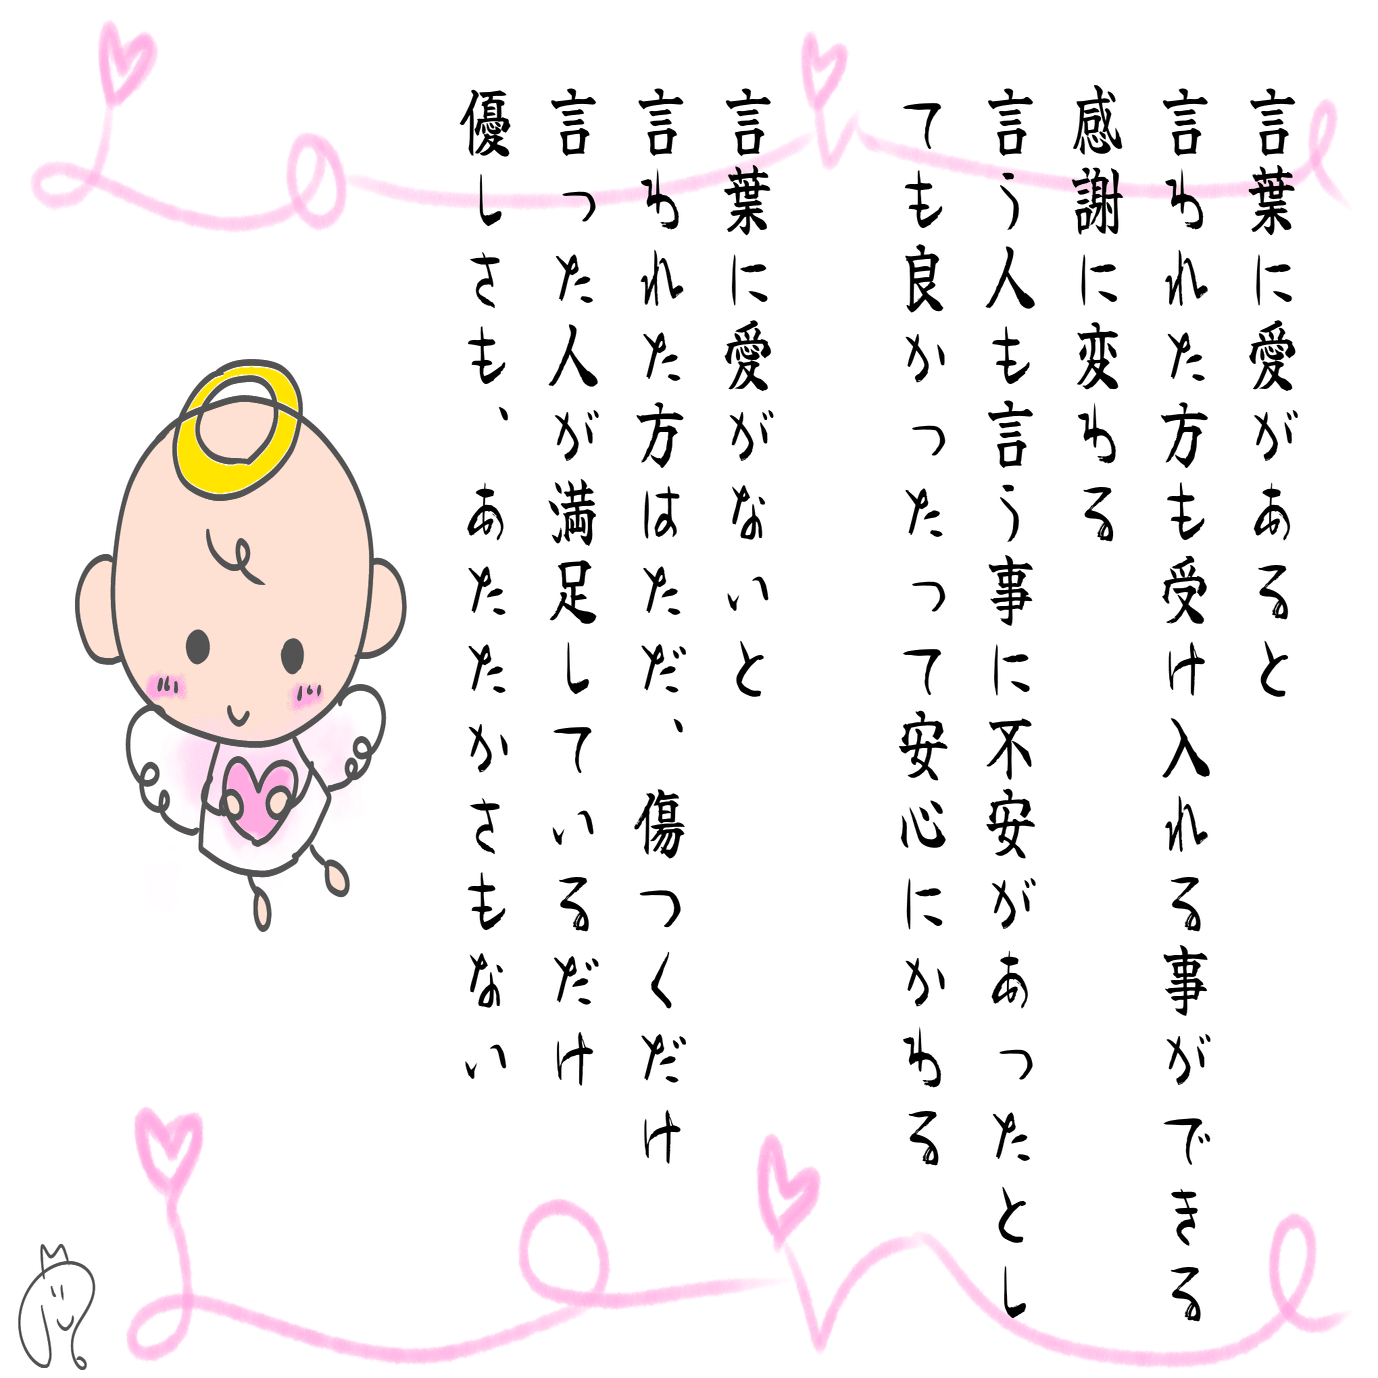 言葉に愛があると
言われた方も受け入れる事ができる
感謝に変わる
言う人も言う事に不安があったとし
ても良かったって安心にかわる
言葉に愛がないと
言われた方はただ、傷つくだけ
言った人が満足しているだけ
優しさも、あたたかさもない